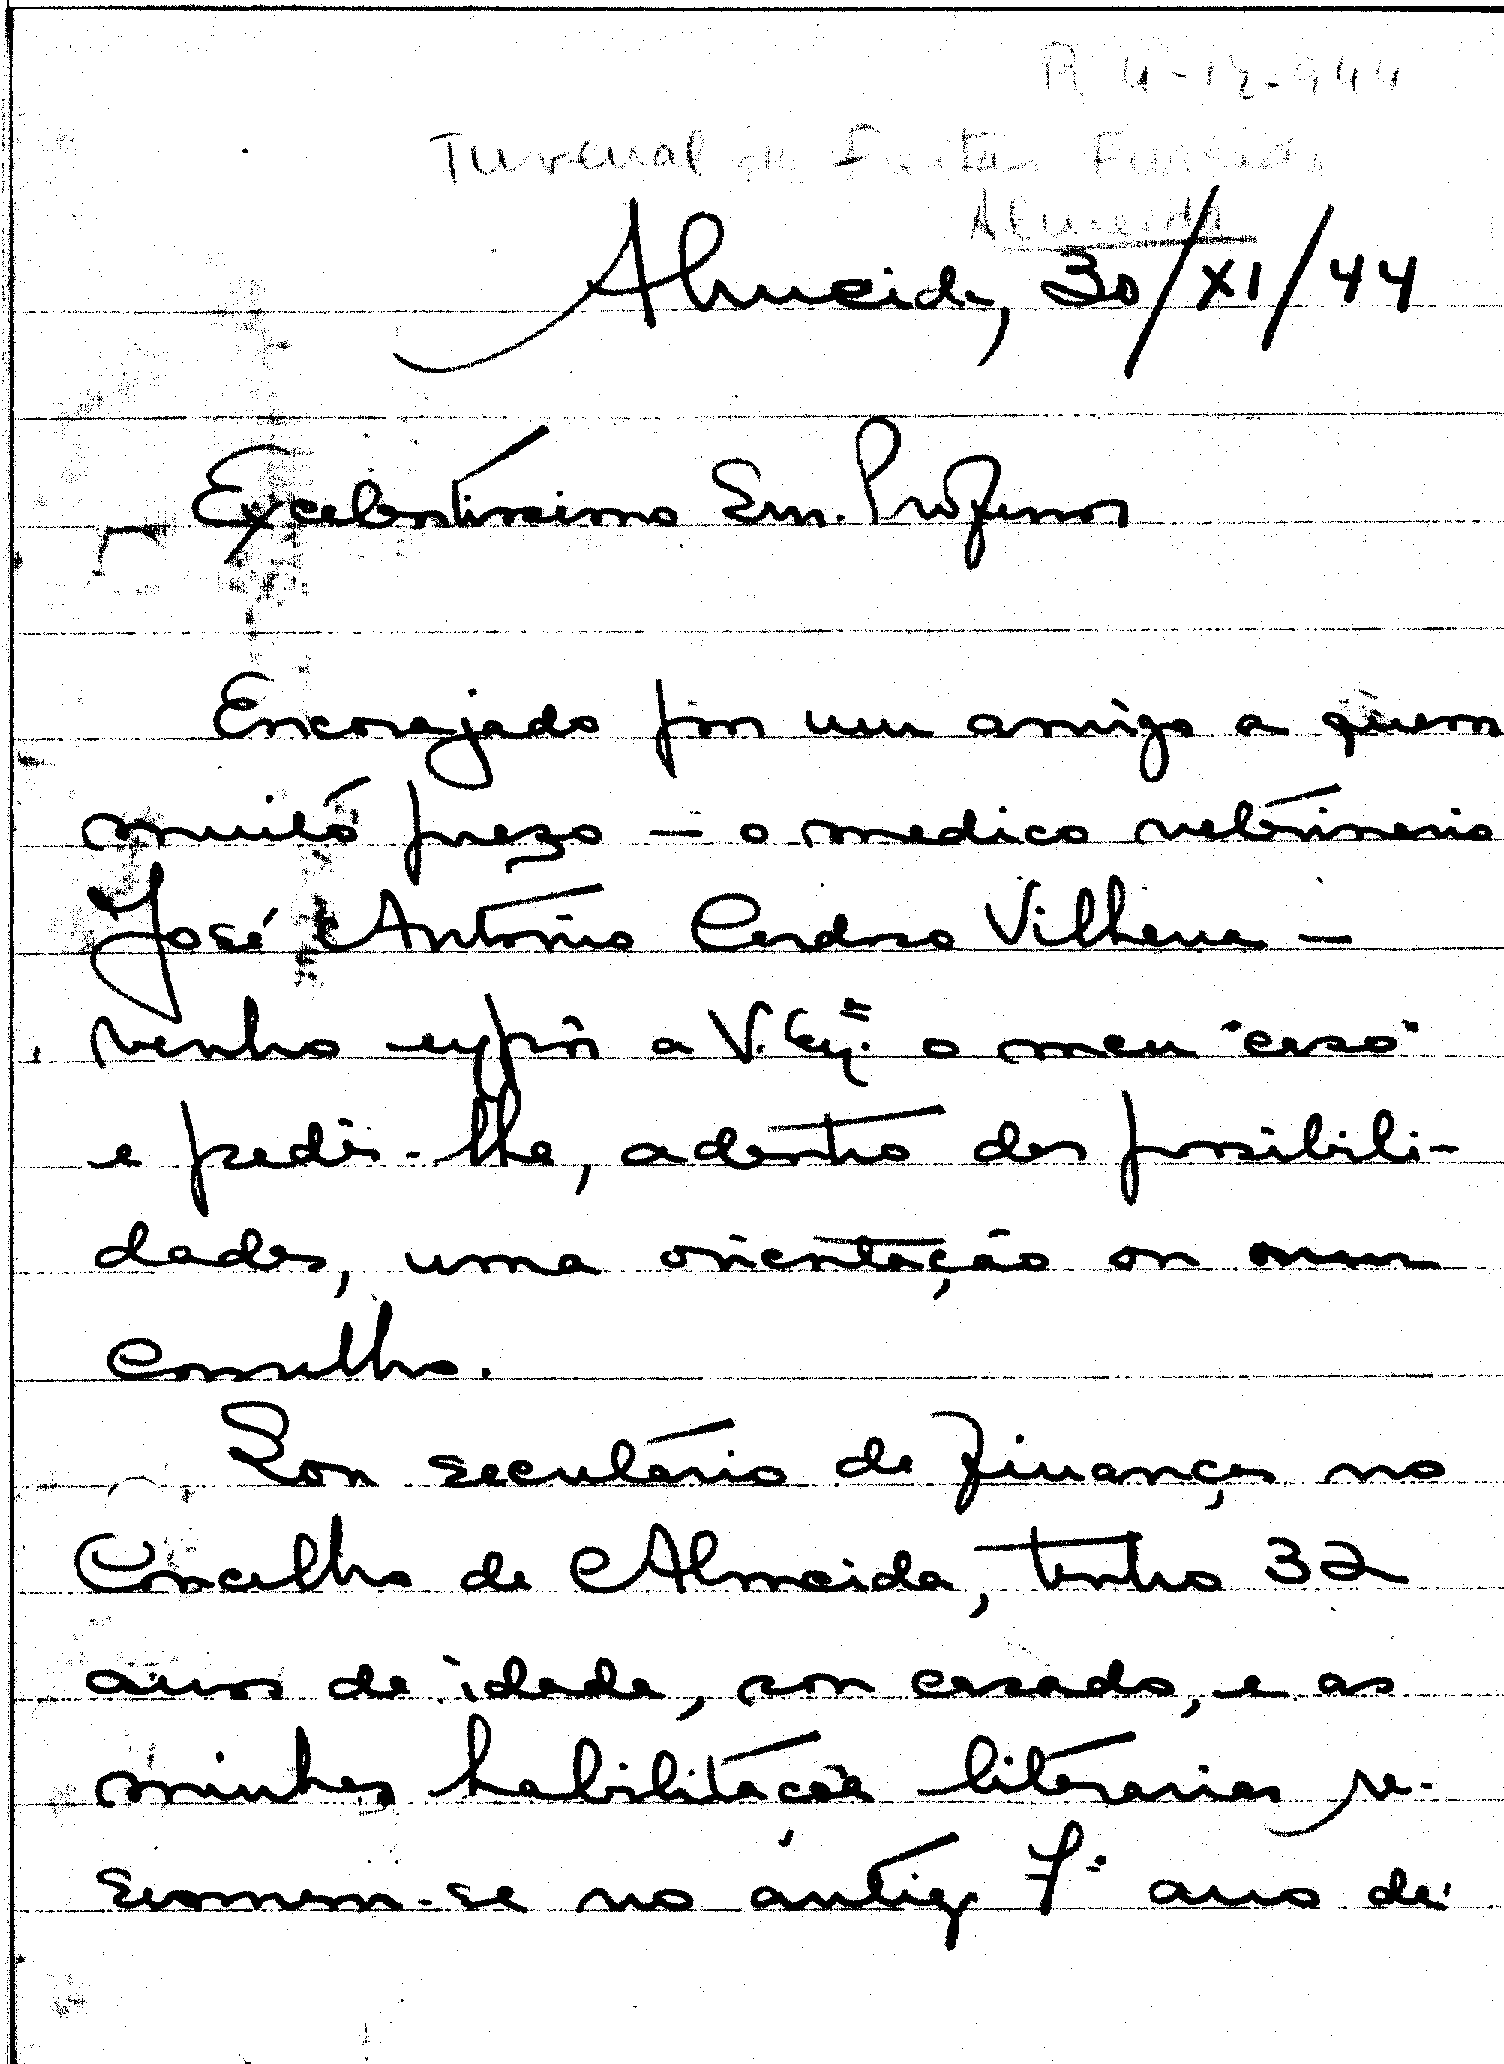 R 4-12-944
Juvenal de Freitas
Almeida
Almeida, 30/XI/44
Excelentíssimo Snr. Professor
Encorajado por um amigo a quem
muito prezo — o medico veterinario
José António Cardoso Vilhena —
venho expôr a V. Ex.ª o meu "caso"
e pedir-lhe, adentro das possibili-
dades, uma orientação ou um
conselho.
Sou secretário de finanças no
Concelho de Almeida, tenho 32
anos de idade, sou casado, e as
minhas habilitações literárias re-
sumem-se no antigo 7º ano de